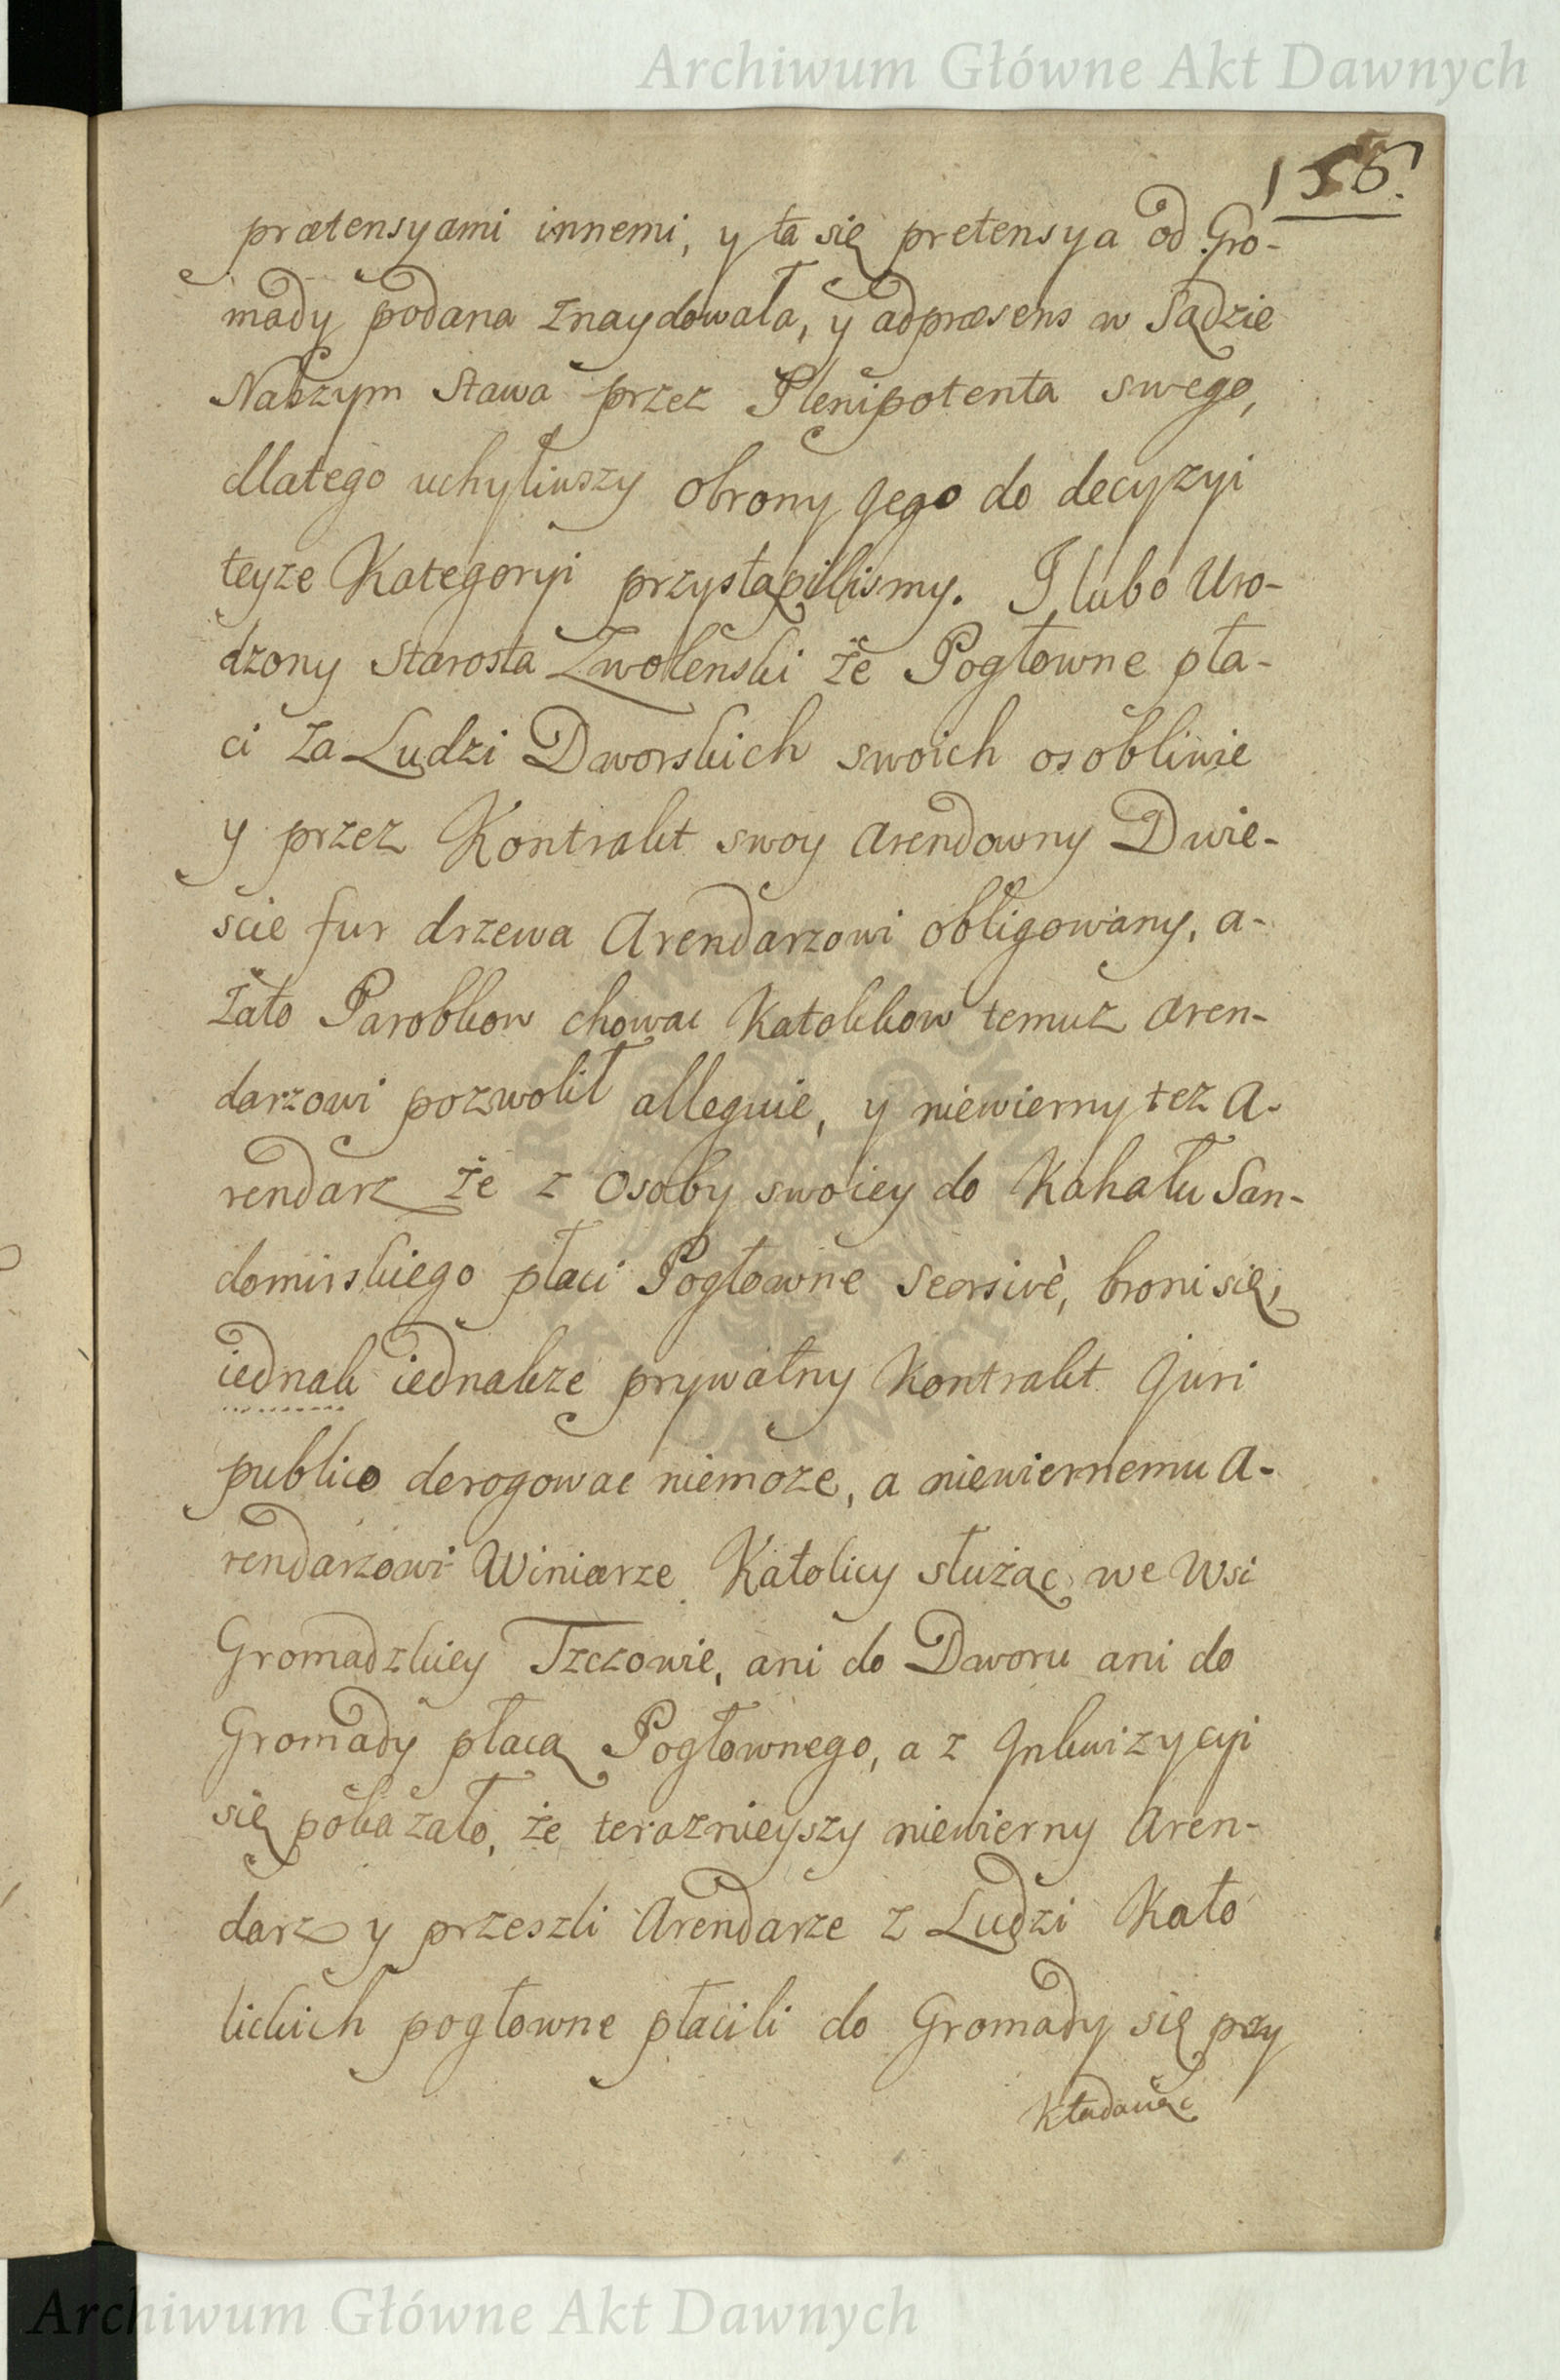 Archiwum Główne Akt Dawnych
prætensyami innemi, y ta się pretensya od Gro-
mady podana znaydowała, y adpræsens w Sądzie
Naszym stawa przez Plenipotenta swego,
dlatego uchyliwszy obrony Jego do decyzyi
teyze Kategoryi przystąpilismy. I lubo Uro-
dzony Starosta Zwolenski że Pogłowne pła-
ci za Ludzi Dworskich swoich osobliwie
y przez Kontrakt swoy Arendowny Dwie-
scie fur drzewa Arendarzowi obligowany, a-
zato Parobkow chowac Katolikow temuz Aren-
darzowi pozwolił alleguie, y niewierny tez A-
rendarz że z Osoby swoiey do Kahału San-
domirskiego płaci Pogłowne Seorsivè, broni się,
iednak iednakze prywatny Kontrakt Juri
publico derogowac niemoze, a niewiernemu A-
rendarzowi Winiarze Katolicy służąc we Wsi
Gromadzkiey Tzczowie, ani do Dworu ani do
Gromady płacą Pogłownego, a z Inkwizycyi
się pokazało, że teraznieyszy niewierny Aren-
darz y przeszli Arendarze z Ludzi Kato
lickich pogłowne płacili do Gromady się przy
Kładaiąc
Archiwum Główne Akt Dawnych